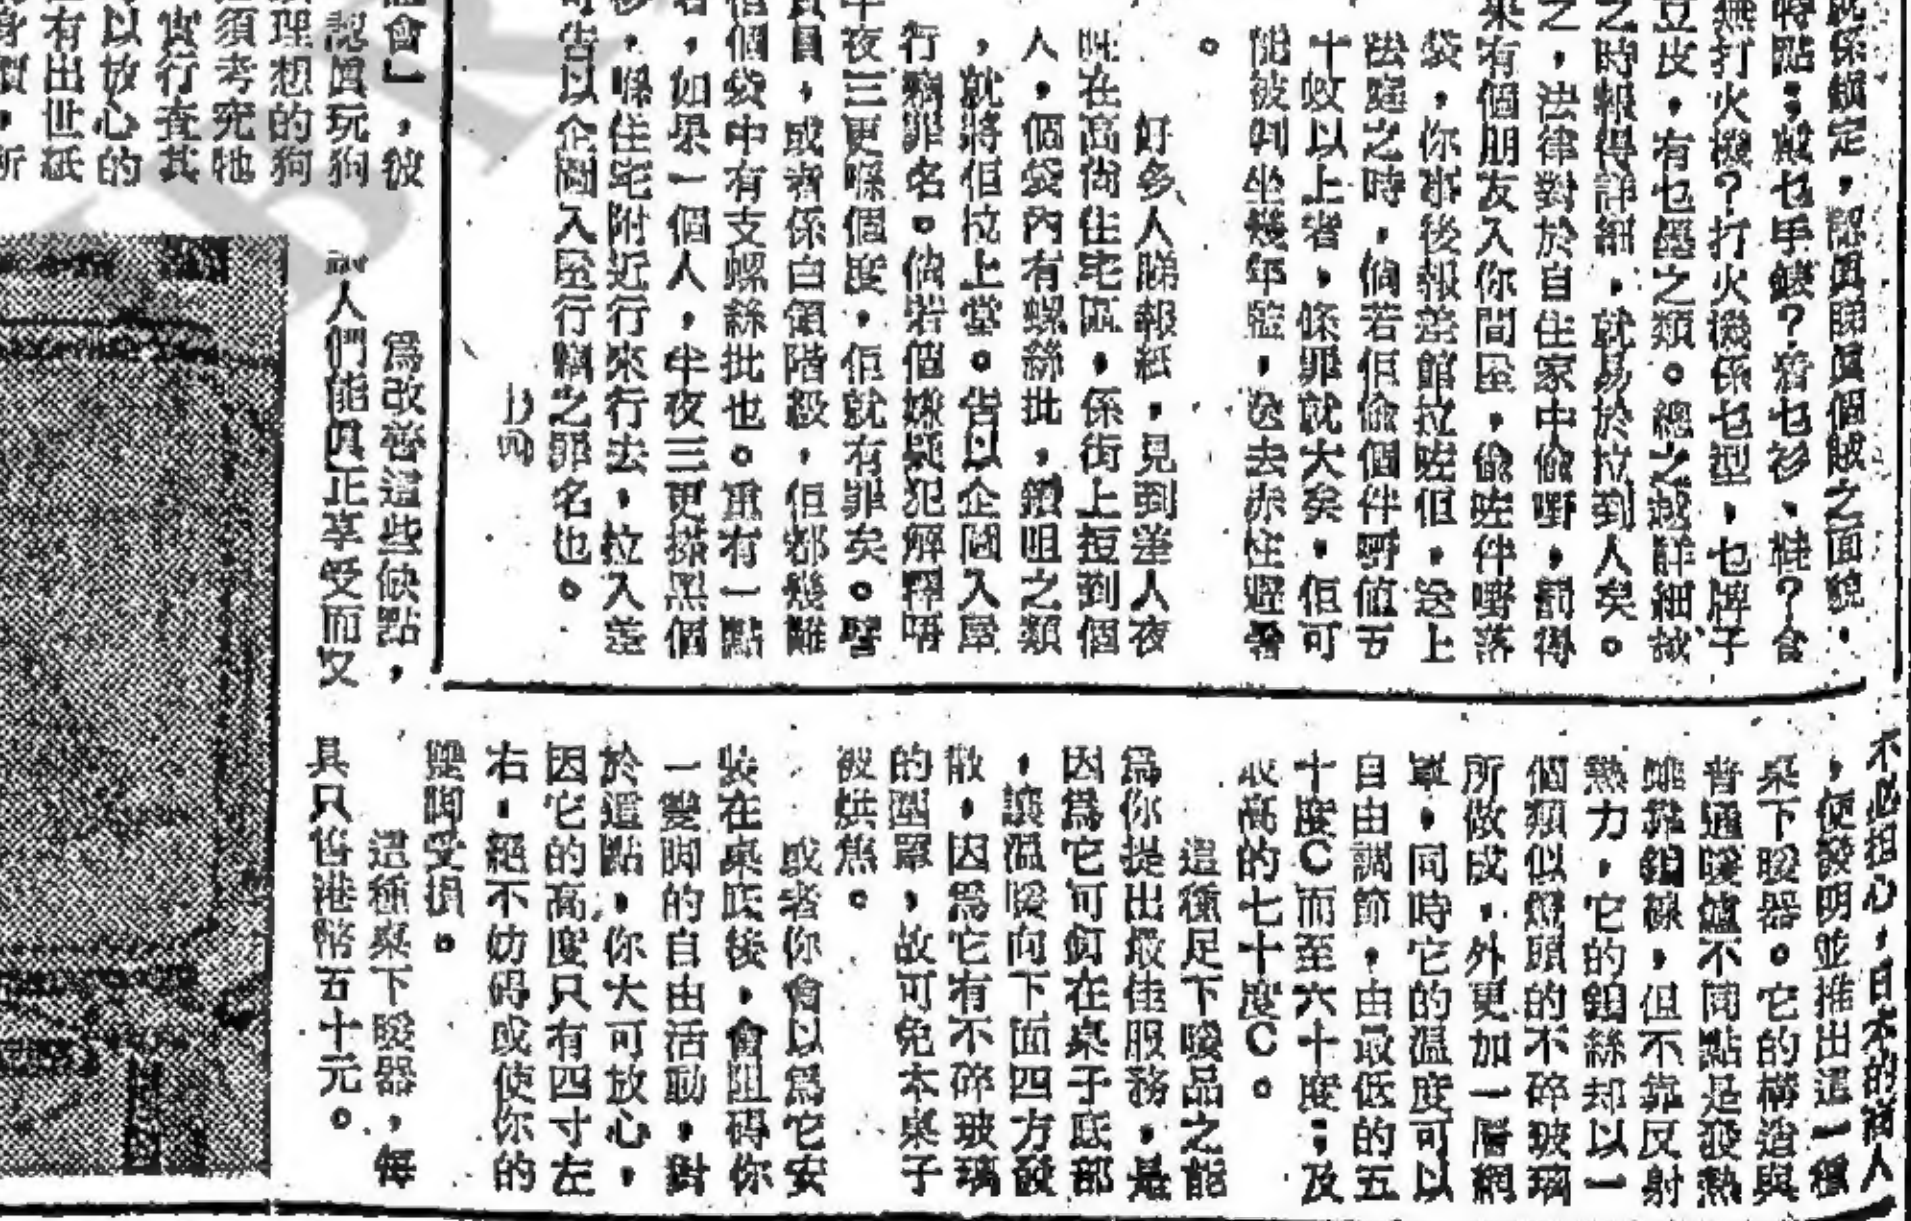 就係鎖定，認眞睇眞個賊之面貌，
時點；戴乜手錶？着乜衫、鞋？含
無打火機？打火機係乜型，乜牌子
豆皮，有乜墨之類。總之越詳細越
之時報得詳細，就易於拉到人矣。
之，法律對於自住家中偷嘢，罰得
果有個朋友入你間屋，偷咗件嘢落
袋，你事後報差館拉咗佢，送上
法庭之時，倘若佢偷個件嘢値五
十蚊以上者，係罪就大矣，佢可
能被判坐幾年監，送去赤柱避暑
。
好多人睇報紙，見到差人夜
晚在高尚住宅區，係街上搜到個
人，個袋內有螺絲批，鑽咀之類
，就將佢拉上堂。告以企圖入屋
行竊罪名。倘若個嫌疑犯解釋唔
半夜三更喺個度，佢就有罪矣。
員，或者係白領階級，但都幾難
個個袋中有支螺絲批也。重有一點
，如果一個人，半夜三更搽黑個
，喺住宅附近行來行去，拉入差
可告以企圖入屋行竊之罪名也。
上四
會」，彼
認眞玩狗
理想的狗
須考究牠
實行查其
以放心的
有出世紙
，所
爲改善這些缺點，
人們能眞正享受而又
不必担心，日本的商人
，便發明並推出這一種
桌下暖器。它的構造與
普通暖爐不同點是發熱
雖靠鎢線，但不靠反射
熱力，它的鎢絲却以一
個類似燈頭的不碎玻璃
所做成，外更加一層網
罩，同時它的溫度可以
自由調節，由最低的五
十度C而至六十度；及
最高的七十度C。
這種足下暖品之能
爲你提出最佳服務，是
因爲它可釘在桌子底部
，讓溫暖向下面四方發
散，因爲它有不碎玻璃
的壁罩，故可免木桌子
被烘焦。
或者你會以爲它安
裝在桌底後，會阻碍你
一雙脚的自由活動，對
於這點，你大可放心，
因它的高度只有四寸左
右，絕不妨碍或使你的
雙脚受損。
這種桌下暖器，每
具只售港幣五十元。